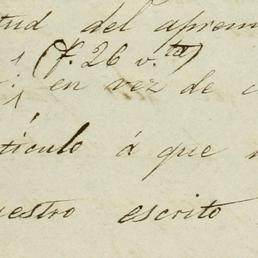 tud del apremi
(f. 26 v.ta)
en vez de c
tículo á que
uestro escrito